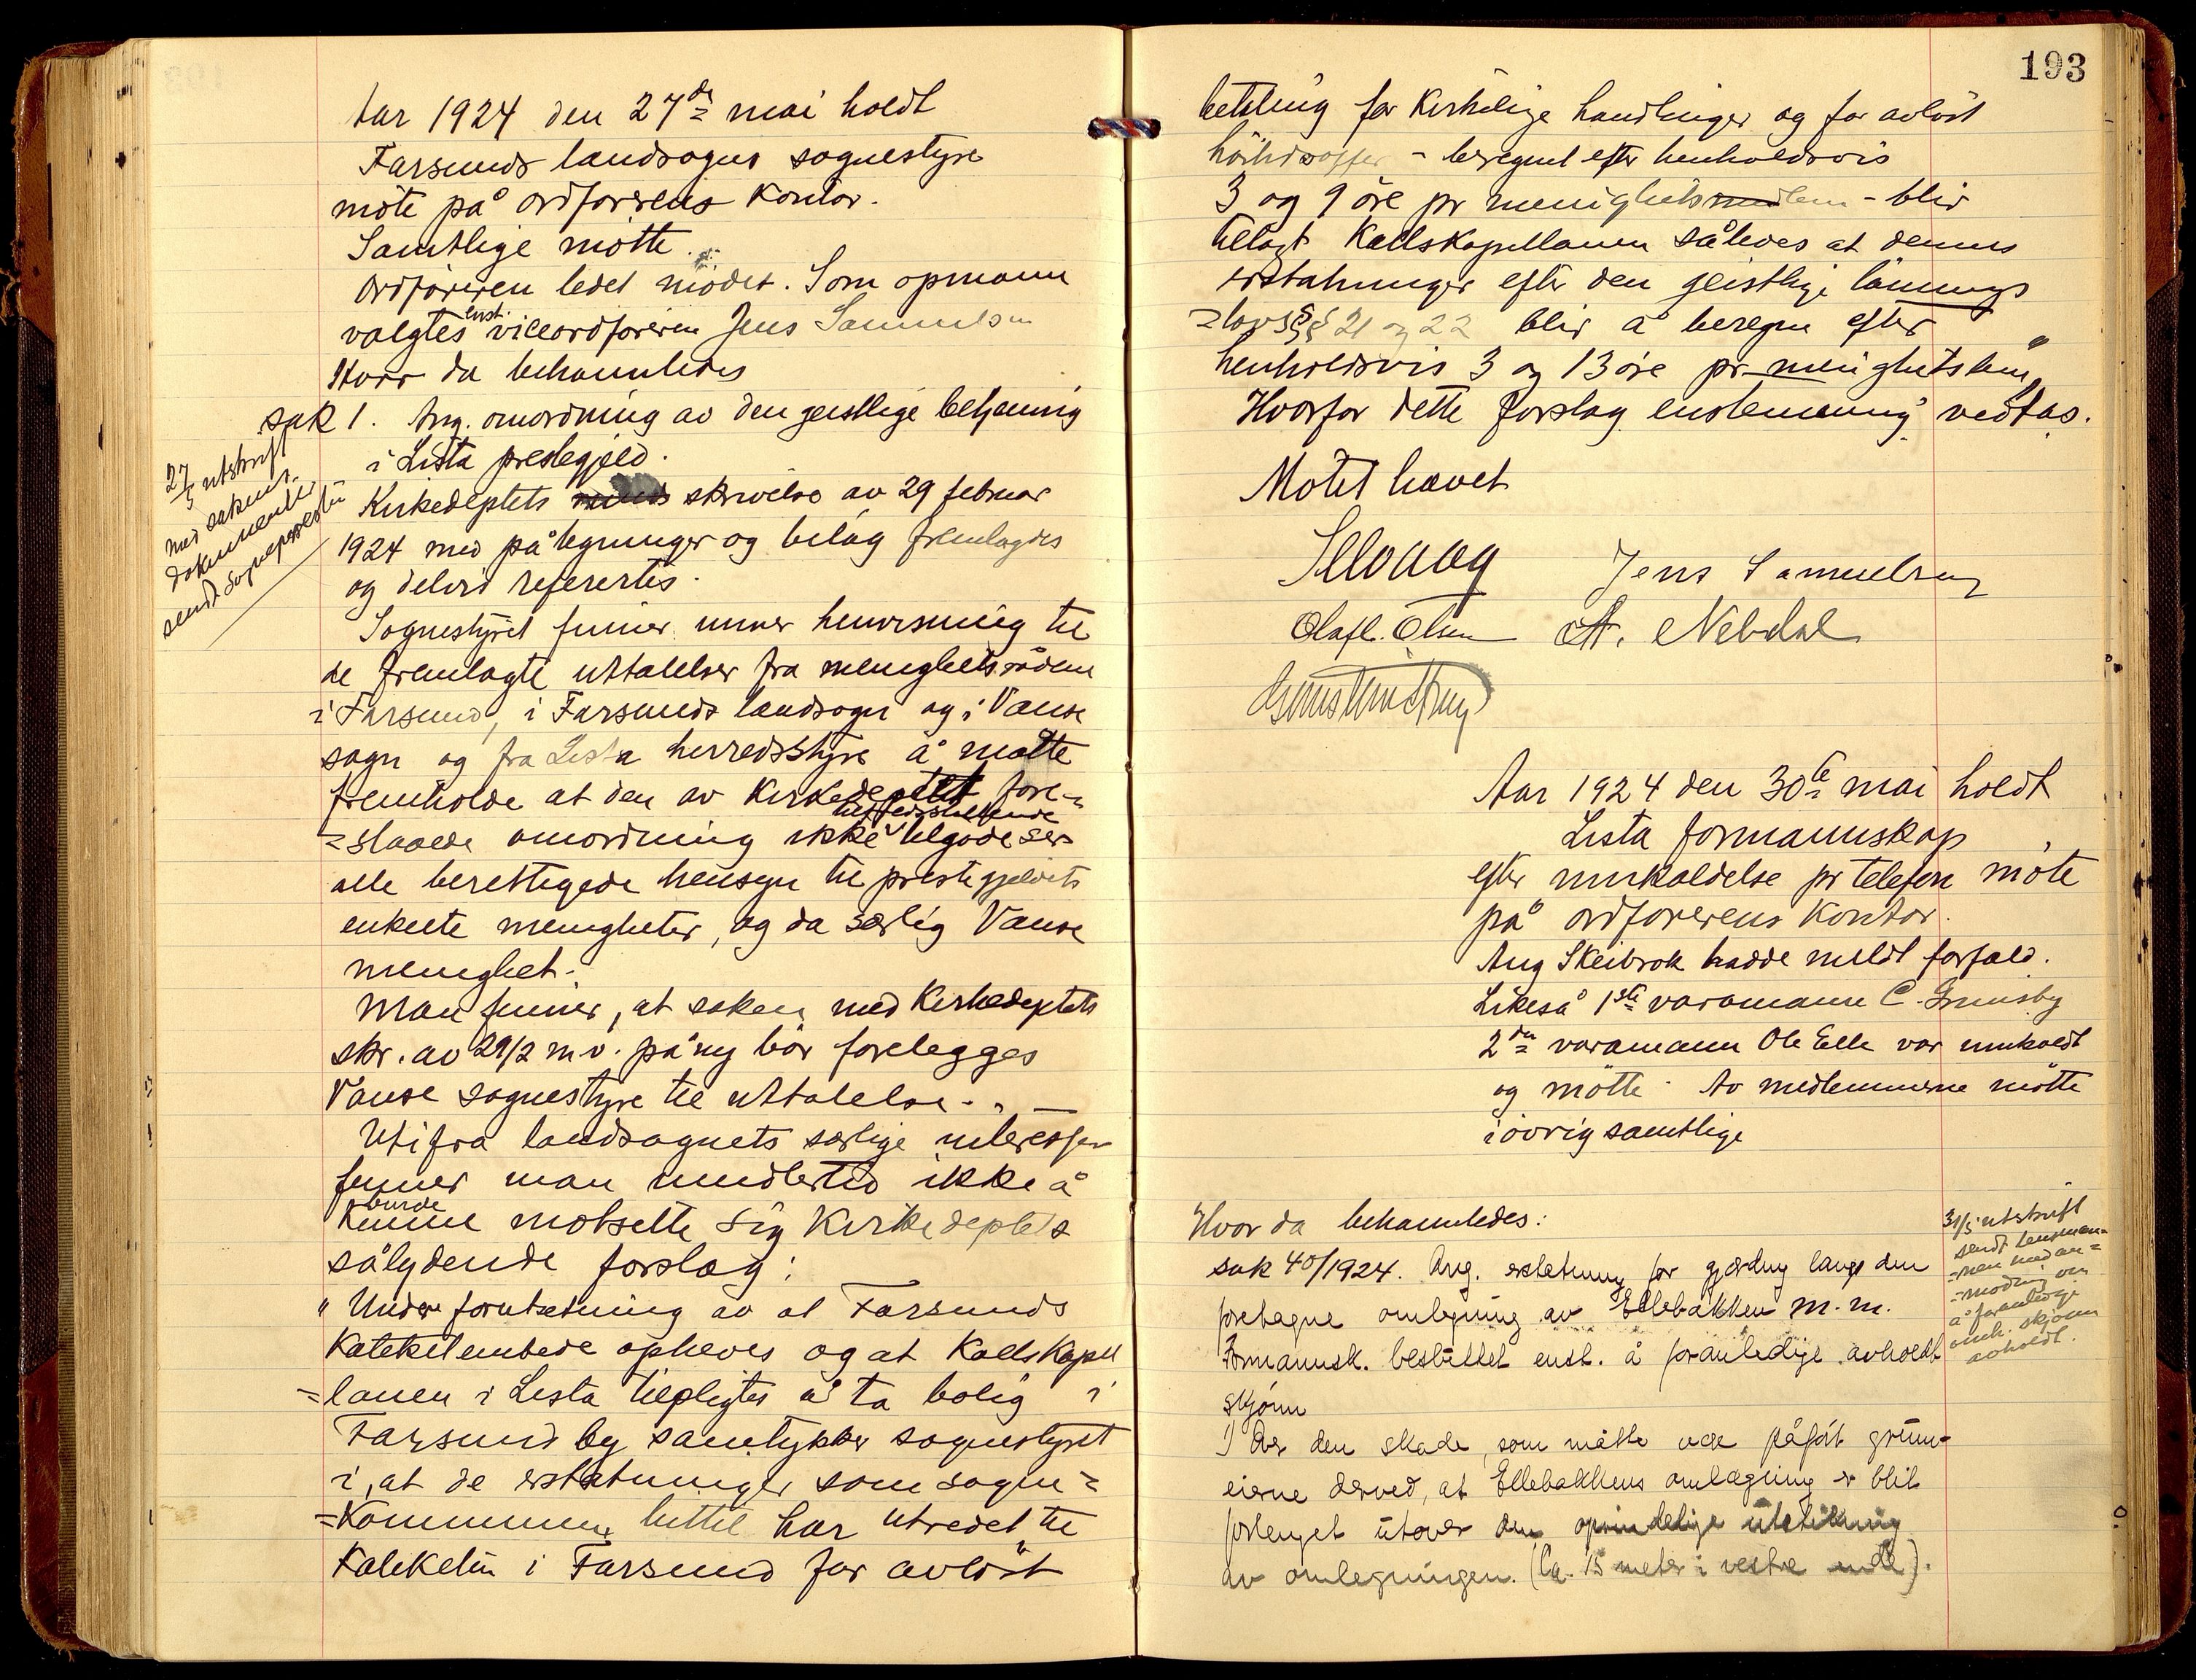 Aar 1924 den 27de mai holdt
Farsunds landsogns sognestyre
møte på ordførerens kontor.
Samtlige møtte.
Ordføreren ledet mødet. Som opmann
valgtes enst. viceordføreren Jens Samuelsen
Hvor da behanntledes
sak 1. Ang. omordning av den geistlige betjening
i Lista prestegjeld.
27/5 utskrift
med sakens
dokumenter
sendt Sognepresten
Kirkedeptets skrivelse av 29 februar
1924 med påtegninger og bilag fremlagdes
og delvis referertes.
Sognestyret finner unner henvisning til
de fremlagte uttalelser fra menighetsrådene
i Farsund, i Farsunds landsogn og i Vanse
sogn og fra Lista herredsstyre å måtte
fremholde at den av Kirkedeptet fore-
=slaaede omordning ikke tilfredsstillende tilgodeser
alle berettigede hensyn til prestegjeldets
enkelte menigheter, og da særlig Vanse
menighet.
Man finner, at saken med Kirkedeptets
skr. av 29/2 m.v. på ny bør forelegges
Vanse sognestyre til uttalelse. -
Utifra landsognets særlige interesser
finner man imidlertid ikke å
kunne burde motsette sig Kirkedeptets
sålydende forslag:
"Under forutsetning av at Farsunds
Kateketembede opheves og at Kallskapel
=lanen i Lista tilpligtes å ta bolig i
Farsund by samtykker sognestyret
i, at de erstatninger som sogne=
=kommunen hittil har utredet til
Kateketen i Farsund for avløst
193
betaling for Kirkelige handlinger og for avløst
høitidsoffer - beregnet efter henholdsvis
3 og 9 øre pr menighetsmedlem - blir
tillagt Kallskapellanen således at dennes
erstatninger efter den geistlige lønnings
=lovs §§ 21 og 22 blir å beregne efter
henholdsvis 3 og 13 øre pr menighetslem"
Hvorfor dette forslag enstemmig vedtas.
Møtet hævet
Jens Samuelsen
Olaf L. Olsen A. Nebdal
Aar 1924 den 30te mai holdt
Lista formannskap
efter innkaldelse pr telefon møte
på ordførerens Kontor.
Aug Skeibrok hadde meldt forfald.
Likeså 1ste varamann C. Grimsby
2den varamann Ole Elle var innkaldt
og møtte. Av medlemmerne møtte
iøvrig samtlige
Hvor da behanntledes:
sak 40/1924. Ang. erstatning for gjerding langs den
foretagne omlegning av Ellebakken m.m.
Formannsk. besluttet enst. å foranledige avholdt
skjønn
31/5 utskrift
sendt lensman=
=nen med an=
=modning om
å foranledige
omh. skjønn
avholdt.
1) Over den skade, som måtte være påført grunn-
eierne derved, at Ellebakkens omlægning er blit
forlenget utover den oprindelige utstikning
av omlegningen. (Ca. 15 meter i vestre ende).